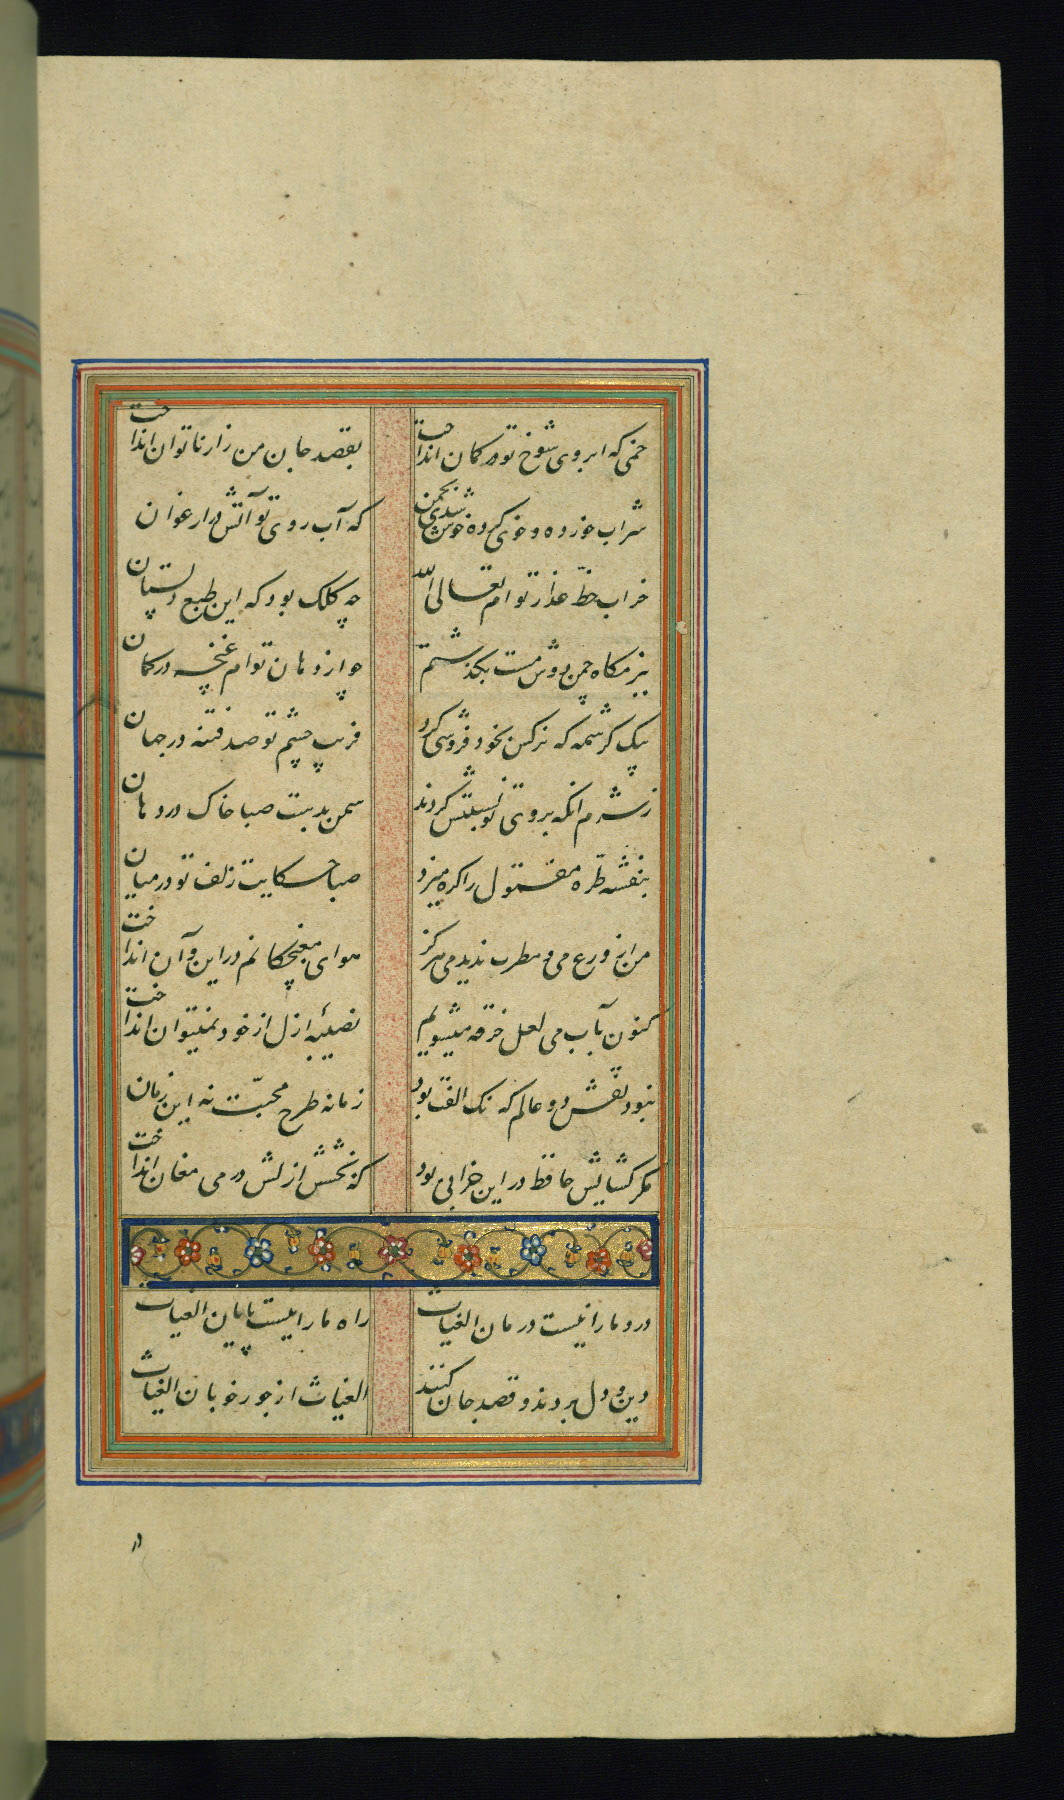 خمی که ابروی شوخ تو در کمان انداخت
بقصد جان من زار ناتوان انداخت
شراب خورده و خوی کرده خوش شدی بچمن
که آب روی تو آتش در ارغوان
خراب خط عذار توام تعالی الله
چه کلک بود که این طبع دلستان
ببزمگاه چمن دوش مست بگذشتم
چو از دهان توام غنچه در کمان
بیک کرشمه که نرکس بخود فروشی کرد
فریب چشم تو صد فتنه در جهان
ز شرم انکه بروی تو نسبتش کردند
سمن بدست صبا خاک در دهان
بنفشه طره مفتول را کره میزد
صبا حکایت زلف تو در میان
من از ورع می و مطرب ندیدمی هرکز
هوای مغبچکانم در این و آن انداخت
کنون بآب می لعل خرقه میشویم
نصیبه ازل از خود نمیتوان انداخت
نبود نقش دو عالم که رنک الفت بود
زمانه طرح محبت نه این زمان
مکر کشایش حافظ در این خرابی بود
که بخشش ازلش در می مغان انداخت
درد ما را نیست درمان الغیاث
راه ما را نیست پایان الغیاث
دین و دل بردند و قصد جان کنند
الغیاث از جور خوبان الغیاث